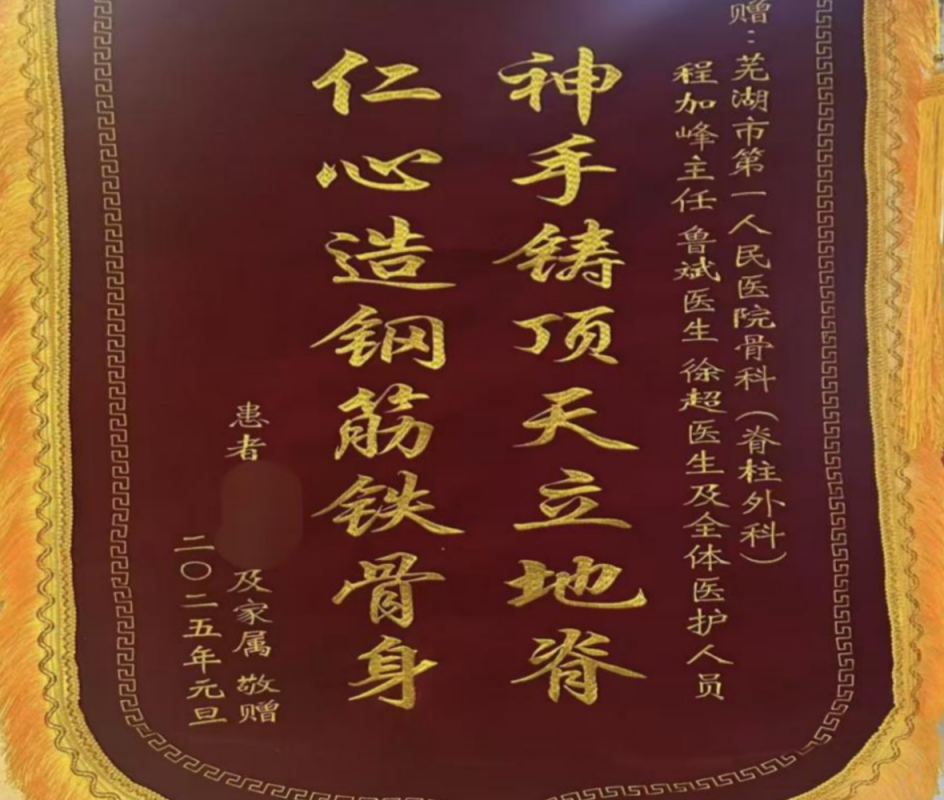 赠：芜湖市第一人民医院骨科（脊柱外科）
程加峰主任 鲁斌医生 徐超医生及全体医护人员
神手铸顶天立地脊
仁心造钢筋铁骨身
患者 及家属 敬赠
二〇二五年元旦